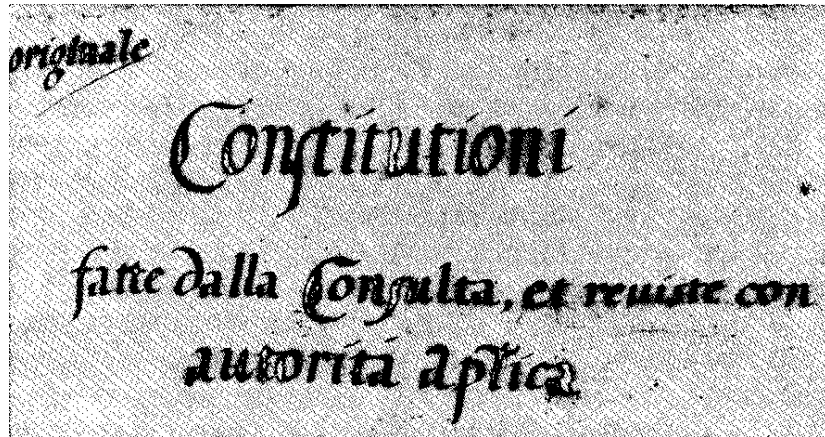 originale
Constitutioni
fatte dalla Consulta, et reuiste con
autorità ap̄lica